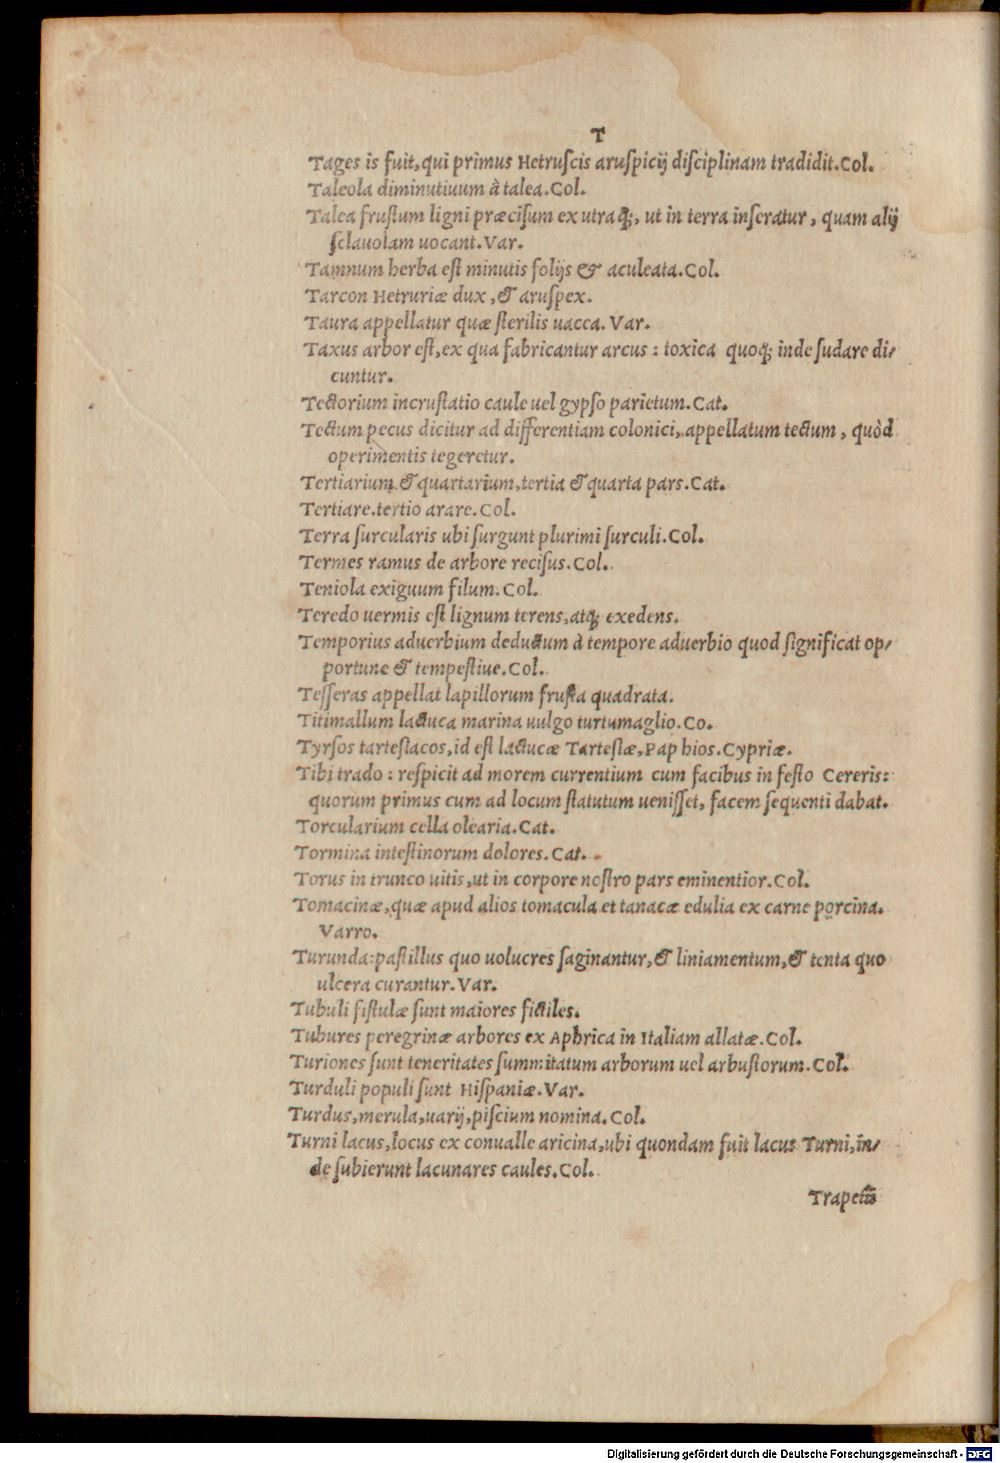 T
Tages is fuit, qui primus Hetruſcis aruſpicij diſciplinam tradidit. Col.
Taleola diminutiuum à talea. Col.
Talea fruſtum ligni præciſum ex utraq;, ut in terra inſeratur, quam alij
ſclauolam uocant. Var.
Tamnum herba eſt minutis folijs & aculeata. Col.
Tarcon Hetruriæ dux, & aruſpex.
Taura appellatur quæ ſterilis uacca. Var.
Taxus arbor eſt, ex qua fabricantur arcus: toxica quoq; inde ſudare di/
cuntur.
Tectorium incruſtatio caule uel gypſo parietum. Cat.
Tectum pecus dicitur ad differentiam colonici, appellatum tectum, quòd
operimentis tegeretur.
Tertiarium & quartarium, tertia & quarta pars. Cat.
Tertiare. tertio arare. Col.
Terra ſurcularis ubi ſurgunt plurimi ſurculi. Col.
Termes ramus de arbore reciſus. Col.
Teniola exiguum filum. Col.
Teredo uermis eſt lignum terens, atq; exedens.
Temporius aduerbium deductum à tempore aduerbio quod ſignificat op/
portune & tempeſtiue. Col.
Teſſeras appellat lapillorum fruſta quadrata.
Titimallum lactuca marina uulgo turtumaglio. Co.
Tyrſos tarteſiacos, id eſt lactucæ Tarteſiæ, Paphios. Cypriæ.
Tibi trado: reſpicit ad morem currentium cum facibus in feſto Cereris:
quorum primus cum ad locum ſtatutum ueniſſet, facem ſequenti dabat.
Torcularium cella olearia. Cat.
Tormina inteſtinorum dolores. Cat.
Torus in trunco uitis, ut in corpore noſtro pars eminentior. Col.
Tomacinæ, quæ apud alios tomacula et tanacæ edulia ex carne porcina.
Varro.
Turunda: paſtillus quo uolucres ſaginantur, & liniamentum, & tenta quo
ulcera curantur. Var.
Tubuli fiſtulæ ſunt maiores fictiles.
Tubures peregrinæ arbores ex Aphrica in Italiam allatæ. Col.
Turiones ſunt teneritates ſummitatum arborum uel arbuſtorum. Col.
Turduli populi ſunt Hiſpaniæ. Var.
Turdus, merula, uarij, piſcium nomina. Col.
Turni lacus, locus ex conualle aricina, ubi quondam fuit lacus Turni, in/
de ſubierunt lacunares caules. Col.
Trapetũ
Digitalisierung gefördert durch die Deutsche Forschungsgemeinschaft - DFG